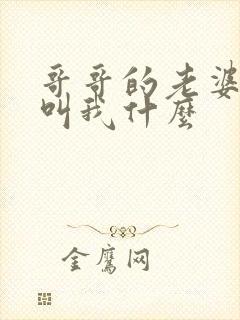 哥哥的老婆
叫我什麼
金鷹网